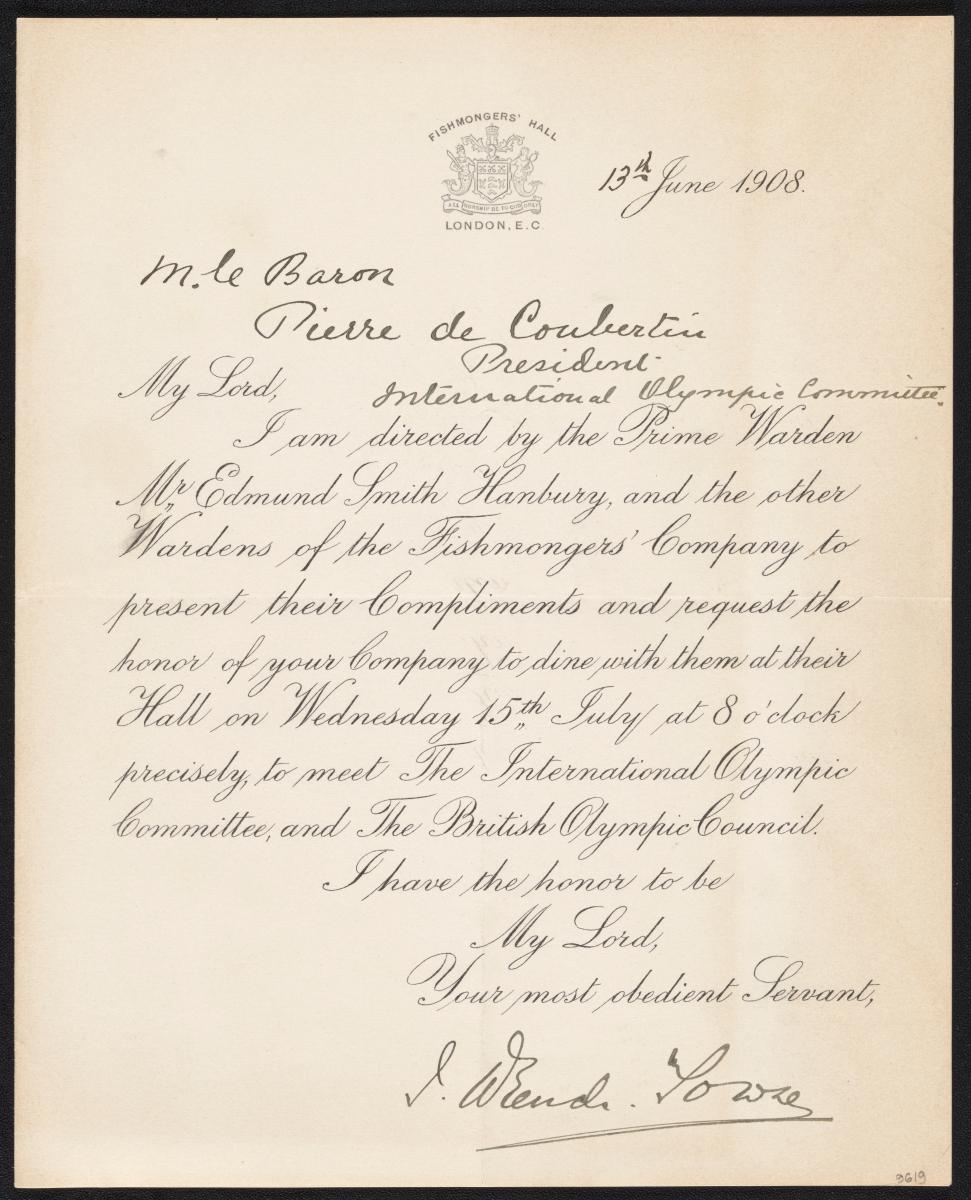 FISHMONGERS' HALL
ALL WORSHIP BE TO GOD ONLY
LONDON, E.C.
13th June 1908.
M. le Baron
Pierre de Coubertin
President
International Olympic Committee.
My Lord,
I am directed by the Prime Warden
Mr. Edmund Smith Hanbury, and the other
Wardens of the Fishmongers' Company to
present their Compliments and request the
honor of your Company to dine with them at their
Hall on Wednesday 15th July at 8 o'clock
precisely, to meet The International Olympic
Committee, and The British Olympic Council.
I have the honor to be
My Lord,
Your most obedient Servant,
J. Wrench Towse
3619